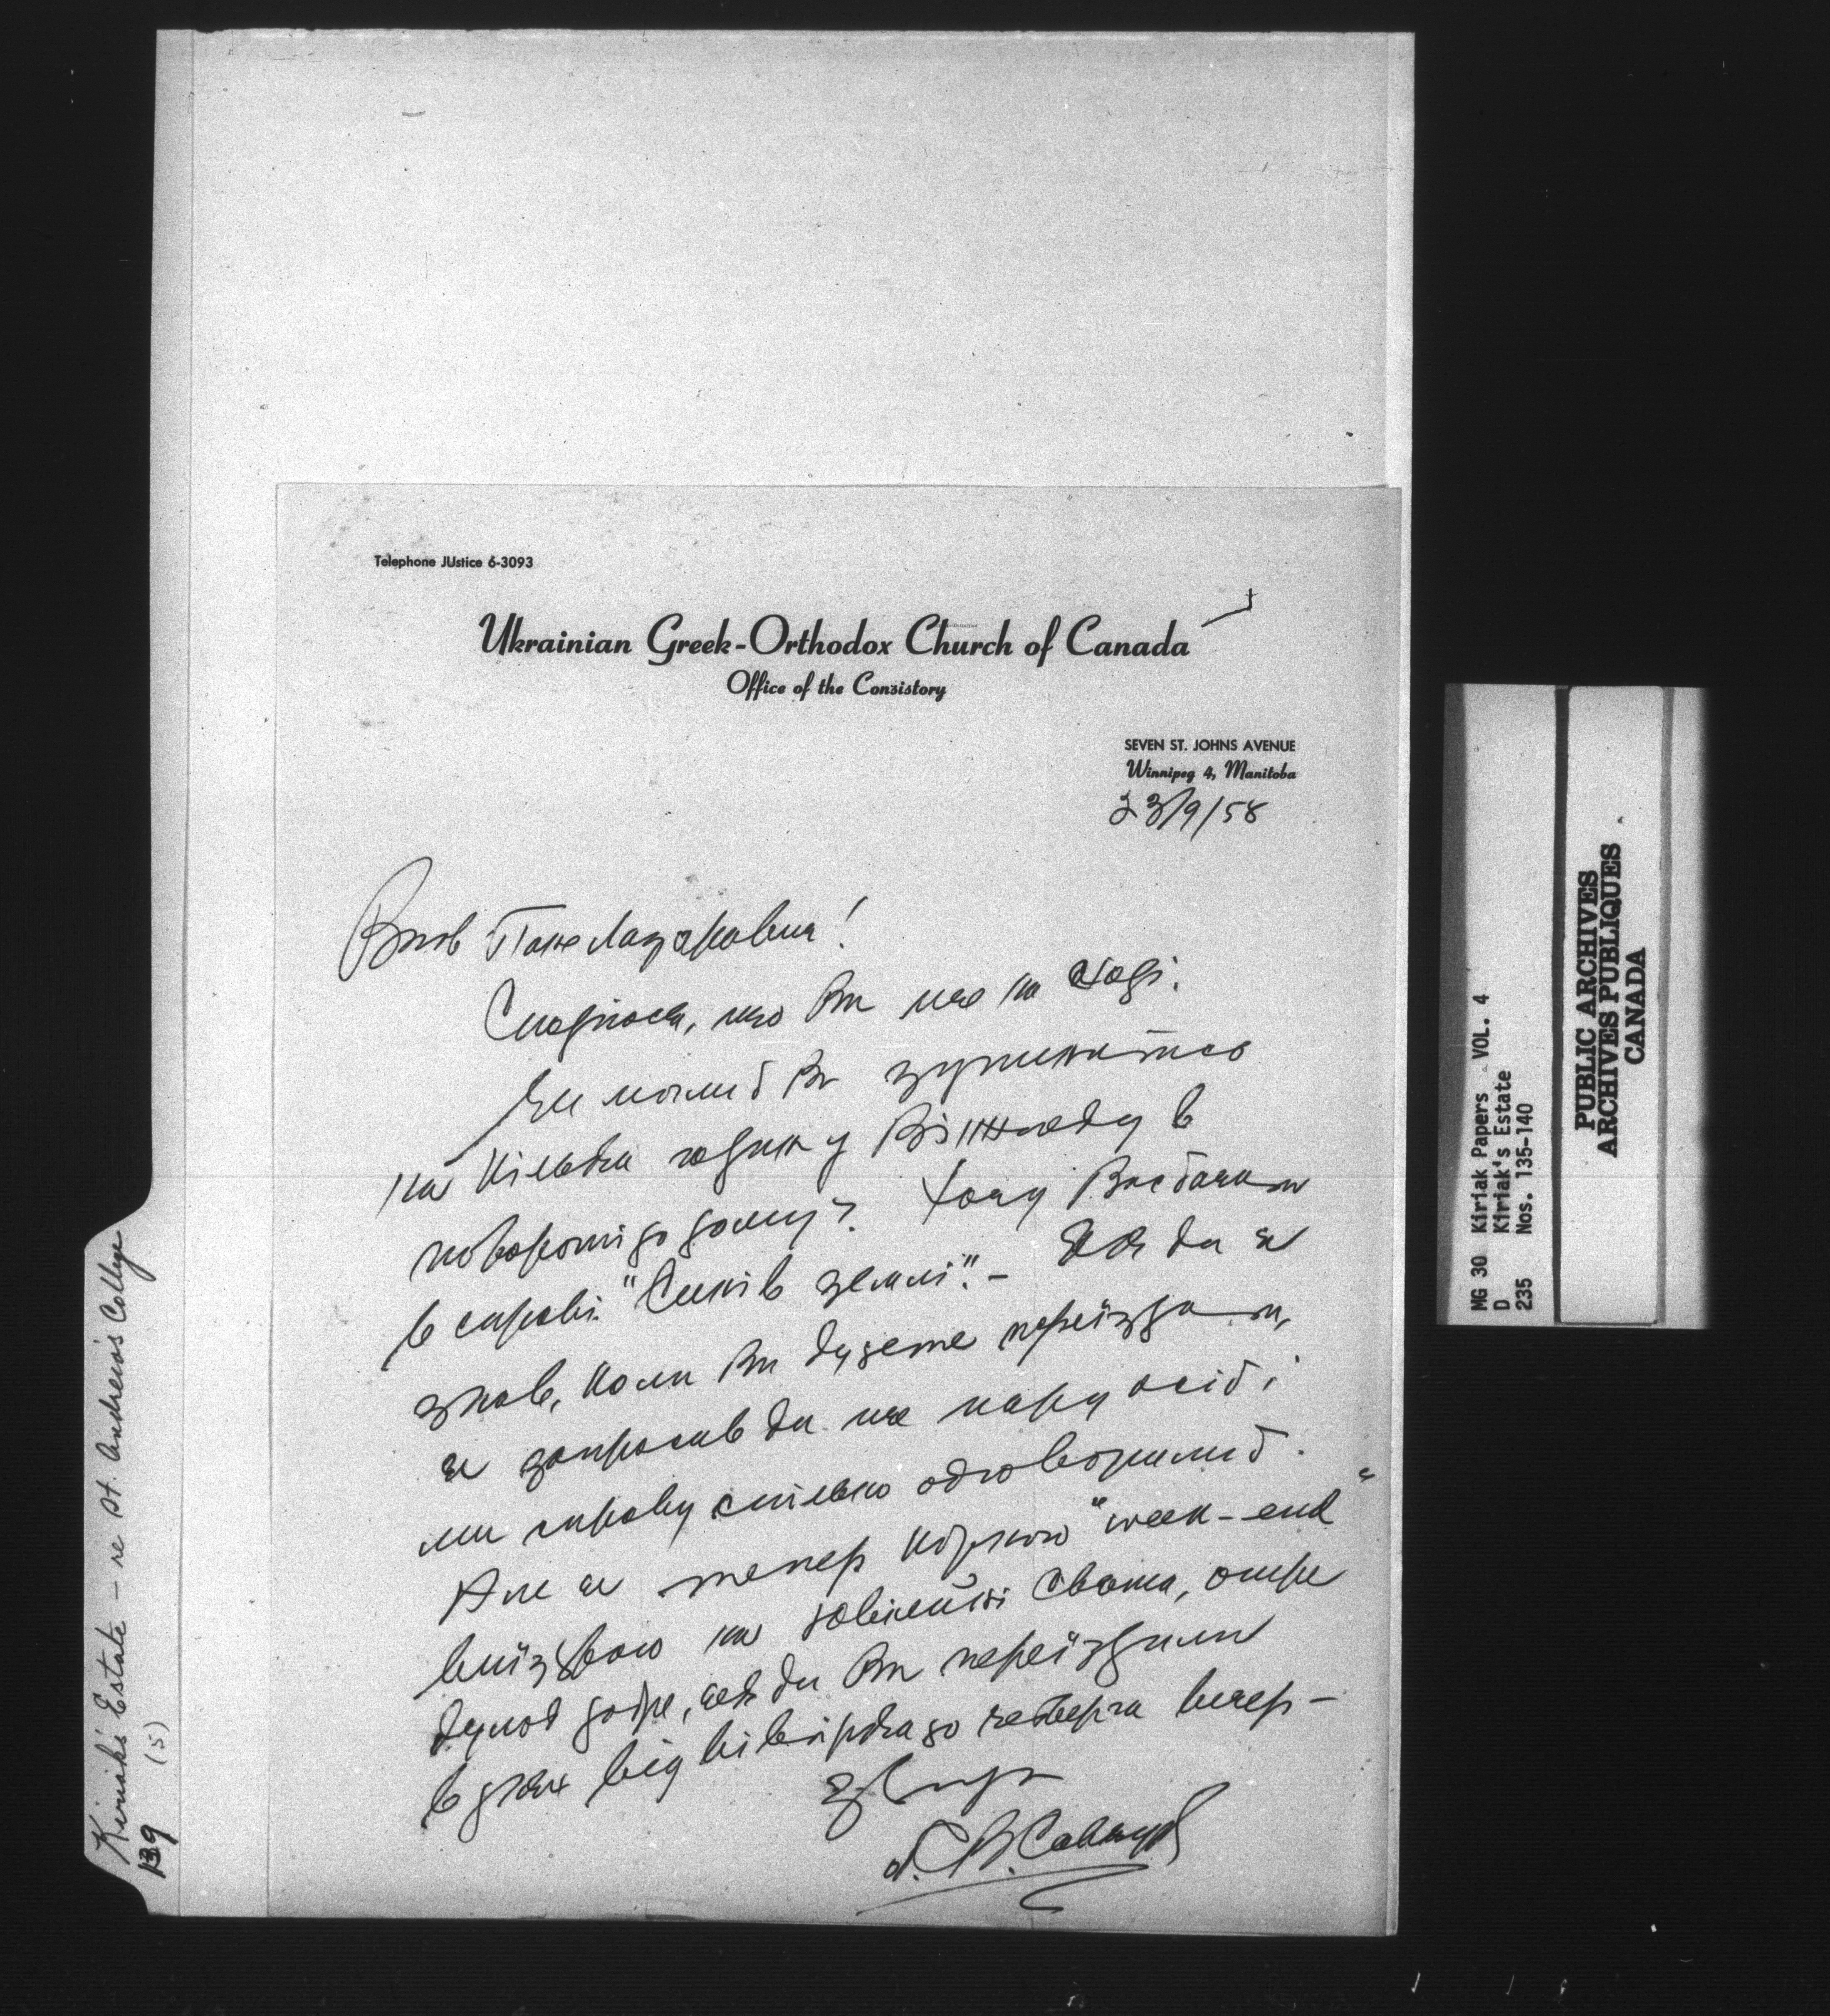 Telephone JUstice 6-3093
Ukrainian Greek-Orthodox Church of Canada
Office of the Consistory
SEVEN ST. JOHNS AVENUE
Winnipeg 4, Manitoba
23/9/58
Пане Лазарович!
Сподіюся, що Ви ще на
Чи могли б Ви зупинитись
на кілька годин у Вінніпегу в
повороті до дому? Хочу Вас бачити
в справі "Синів землі". – Якби я
знав, коли Ви будете переїздити,
я запросив би ще пару осіб і
ми справу спільно обговорили б.
Але я тепер кожного "week-end"
виїзджаю на ювілейні свята, отже
було б добре, якби Ви переїздили
в днях від вівірка до четверга вечер –
Kiriak's Estate – re St. Andrew's College
(5)
139
MG 30 Kiriak Papers VOL. 4
D Kiriak's Estate
235 Nos. 135-140
PUBLIC ARCHIVES
ARCHIVES PUBLIQUES
CANADA